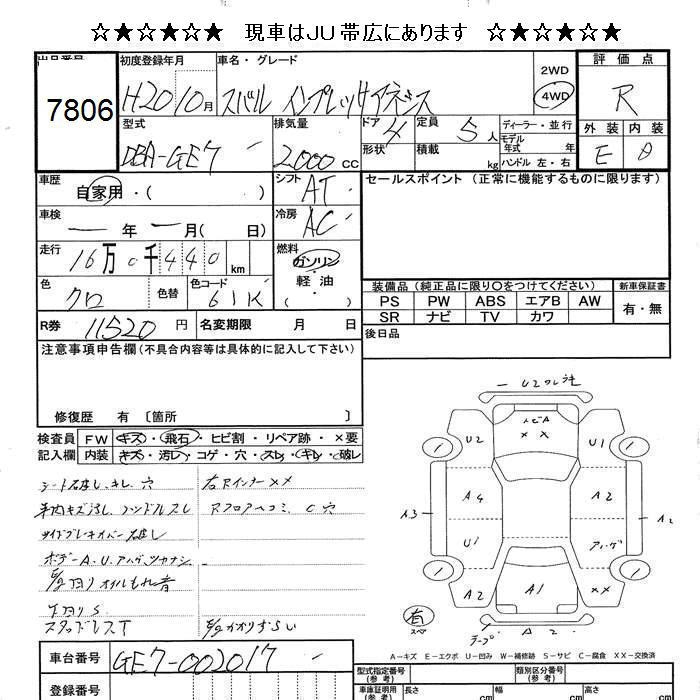 ☆★☆★☆★ 現車はJU帯広にあります ☆★☆★☆★
出品番号 7806
初度登録年月 H20 10月
車名・グレード スバル インプレッサ アネシス
2WD 4WD
評価点 R
外装 E 内装 D
型式 DBA-GE7
排気量 2000 cc
ドア 4 形状
定員 5人 積載 kg
ディーラー・並行
モデル年式 年
ハンドル 左・右
車歴 自家用・( )
シフト AT
車検 ー年ー月( 日)
冷房 AC
走行 16万0千440km
燃料 ガソリン・軽油・( )
色 クロ 色替 色コード 61K
R券 11520円 名変期限 月 日
セールスポイント (正常に機能するものに限ります)
装備品(純正品に限り○をつけてください) 新車保証書
PS PW ABS エアB AW 有・無
SR ナビ TV カワ
後日品
注意事項申告欄(不具合内容等は具体的に記入して下さい)
修復歴 有 〔箇所 〕
検査員 FW キズ・飛石・ヒビ割・リペア跡・×要
記入欄 内装 キズ・汚レ・コゲ・穴・スレ・キレ・破レ
シート破レ、キレ、穴 右Rインナー××
車内キズ汚レ ハンドルスレ Rフロアヘコミ、C穴
サイドブレーキカバー破レ
ボデーA、U、アハゲ、ツカナシ
E/g下回りオイルもれ 音
下回りS
スタッドレスT E/gかかりずらい
ー U2ワレ 注
トビA
××
U2 U1
1 1
A3 A4 A2 A2
U1 アハゲ
1 1
A2 A1 ××
有 スペ
テープ A2
A-キズ E-エクボ U-凹み W-補修跡 S-サビ C-腐食 XX-交換済
車台番号 GE7-002017
登録番号
型式指定番号(参考) 類別区分番号(参考)
車庫証明用(参考) 長さ cm 幅 cm 高さ cm